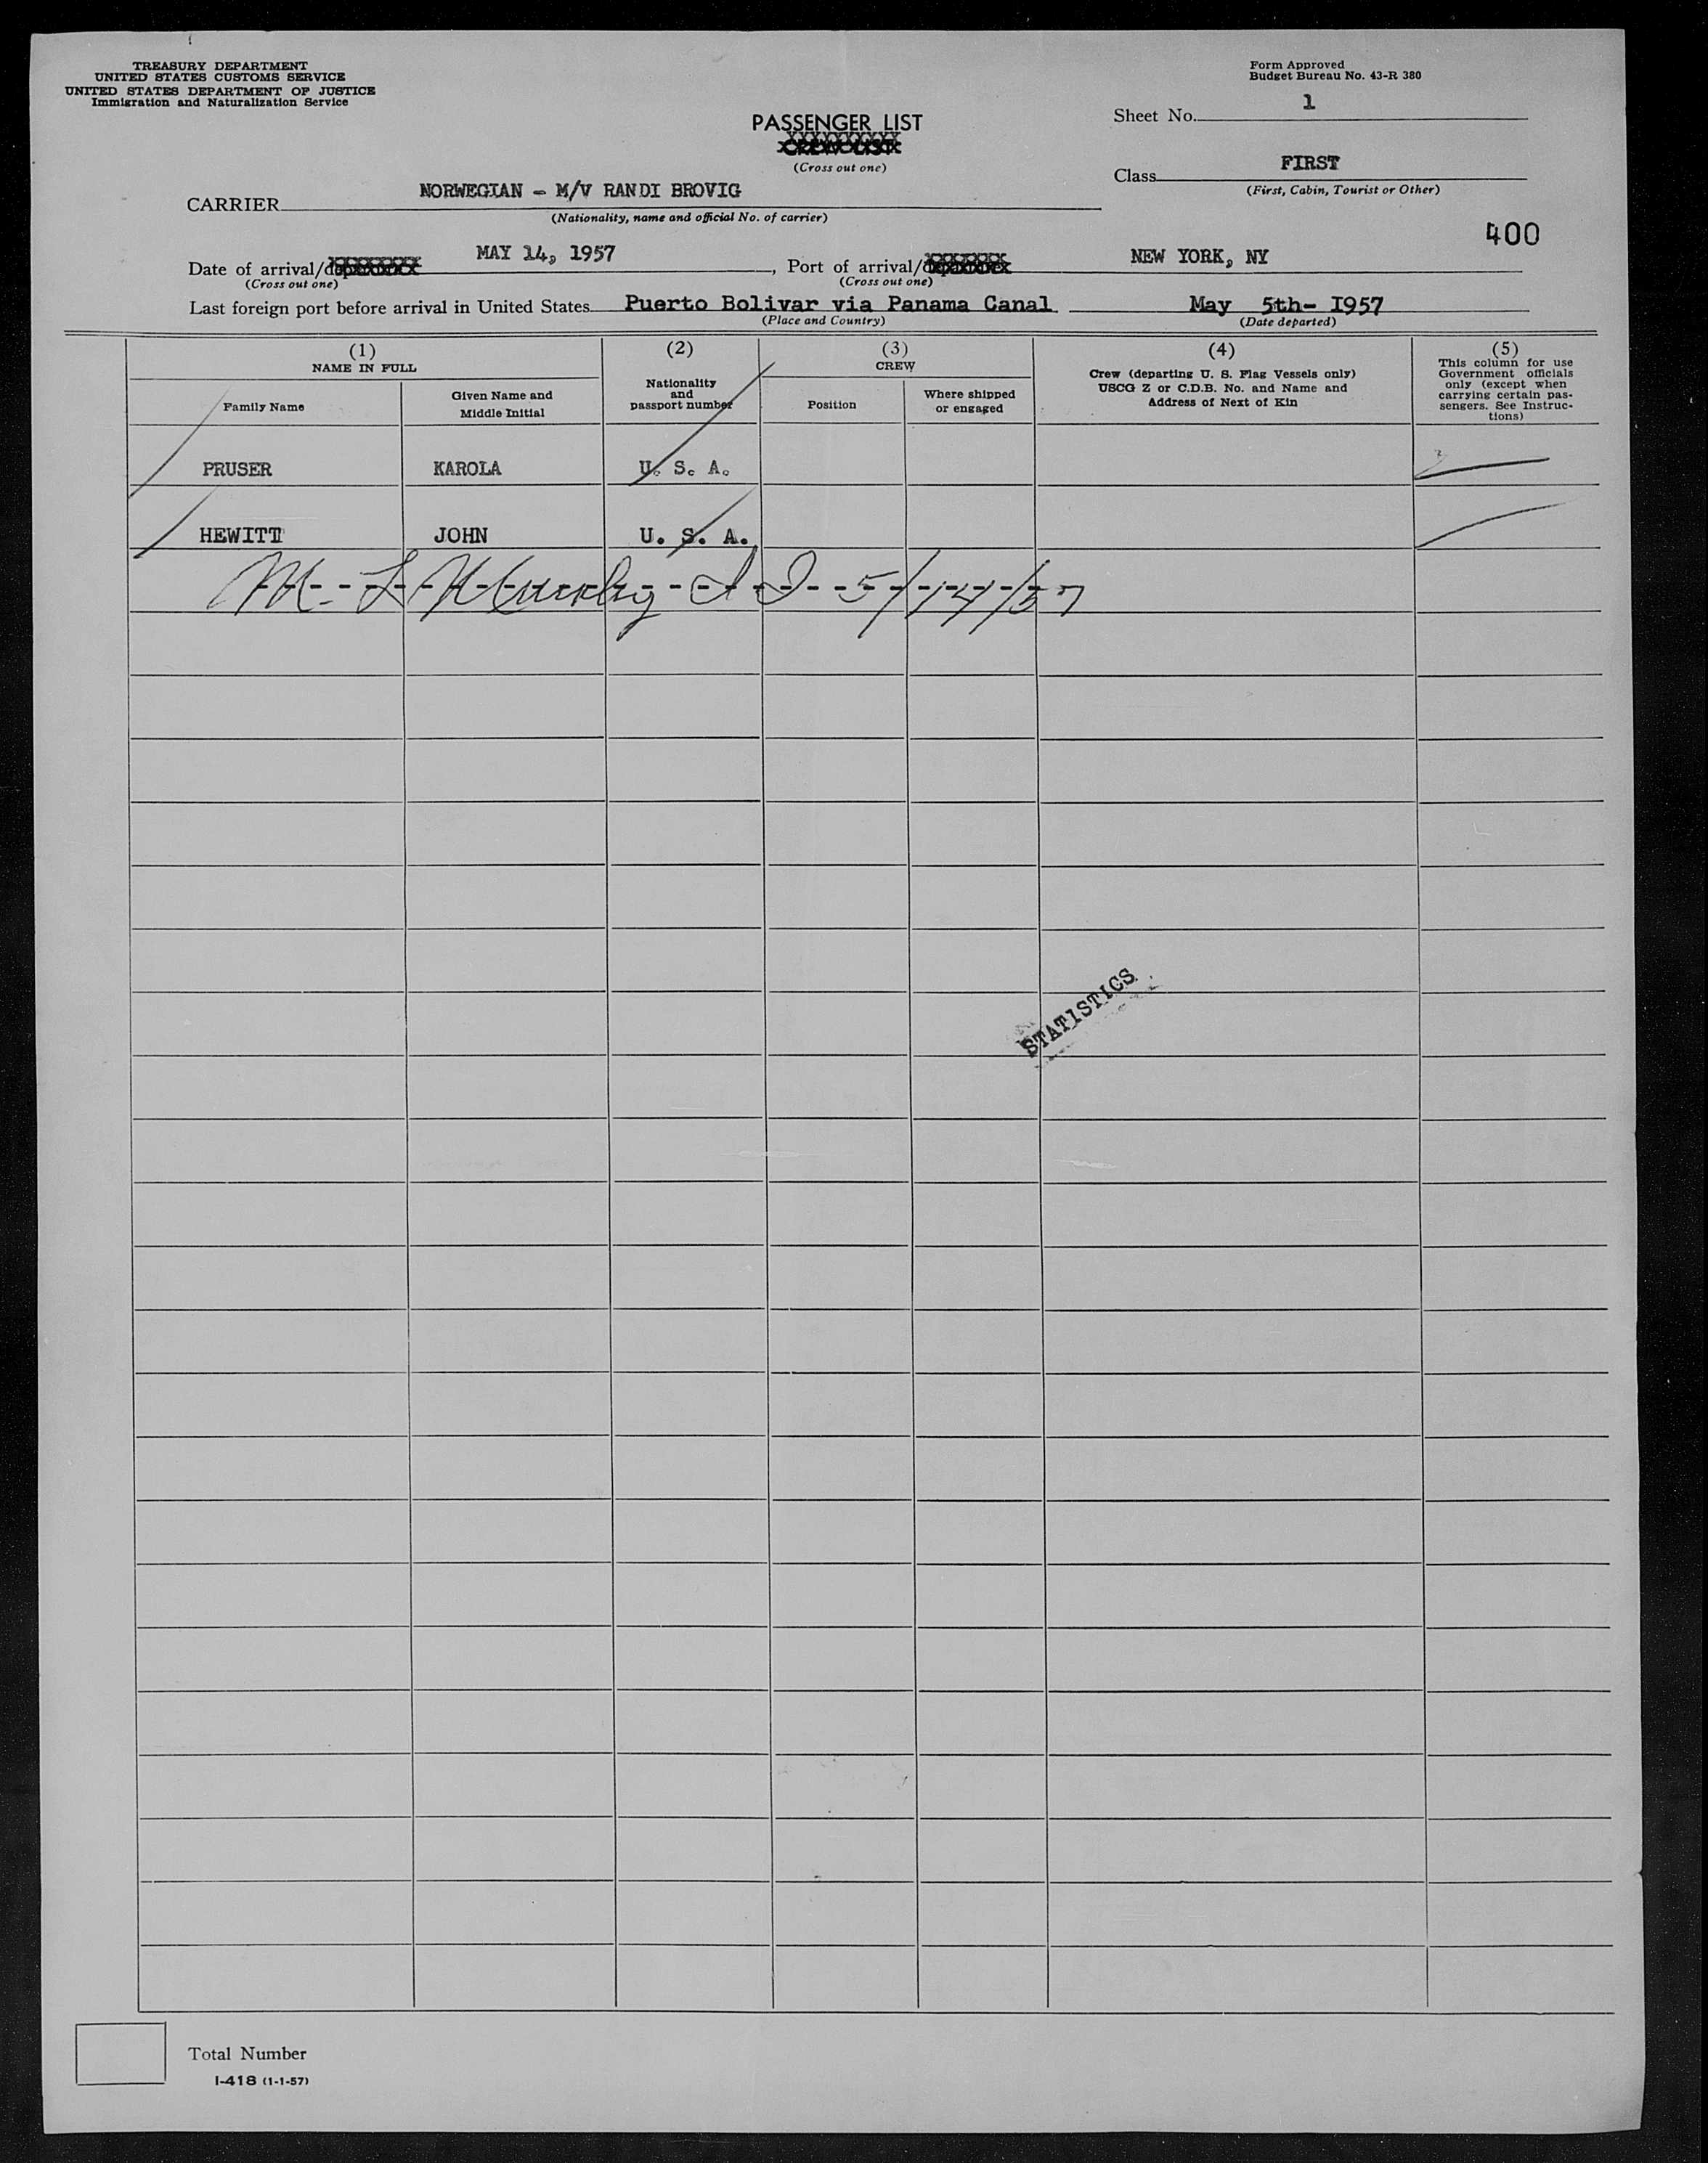 TREASURY DEPARTMENT
UNITED STATES CUSTOMS SERVICE
UNITED STATES DEPARTMENT OF JUSTICE
Immigration and Naturalization Service
Form Approved
Budget Bureau No. 43-R 380
Sheet No. 1
PASSENGER LIST
CREW LIST
(Cross out one)
Class FIRST
(First, Cabin, Tourist or Other)
CARRIER NORWEGIAN - M/V RANDI BROVIG
(Nationality, name and official No. of carrier)
400
Date of arrival/departure MAY 14, 1957, Port of arrival/departure NEW YORK, NY
(Cross out one) (Cross out one)
Last foreign port before arrival in United States Puerto Bolivar via Panama Canal May 5th- I957
(Place and Country) (Date departed)
(1) NAME IN FULL
Family Name
Given Name and Middle Initial
(2)
Nationality and passport number
(3) CREW
Position
Where shipped or engaged
(4)
Crew (departing U. S. Flag Vessels only)
USCG Z or C.D.B. No. and Name and
Address of Next of Kin
(5)
This column for use
Government officials
only (except when
carrying certain pas-
sengers. See Instruc-
tions)
PRUSER KAROLA U. S. A.
HEWITT JOHN U. S. A.
5/14/57
STATISTICS
Total Number
I-418 (1-1-57)